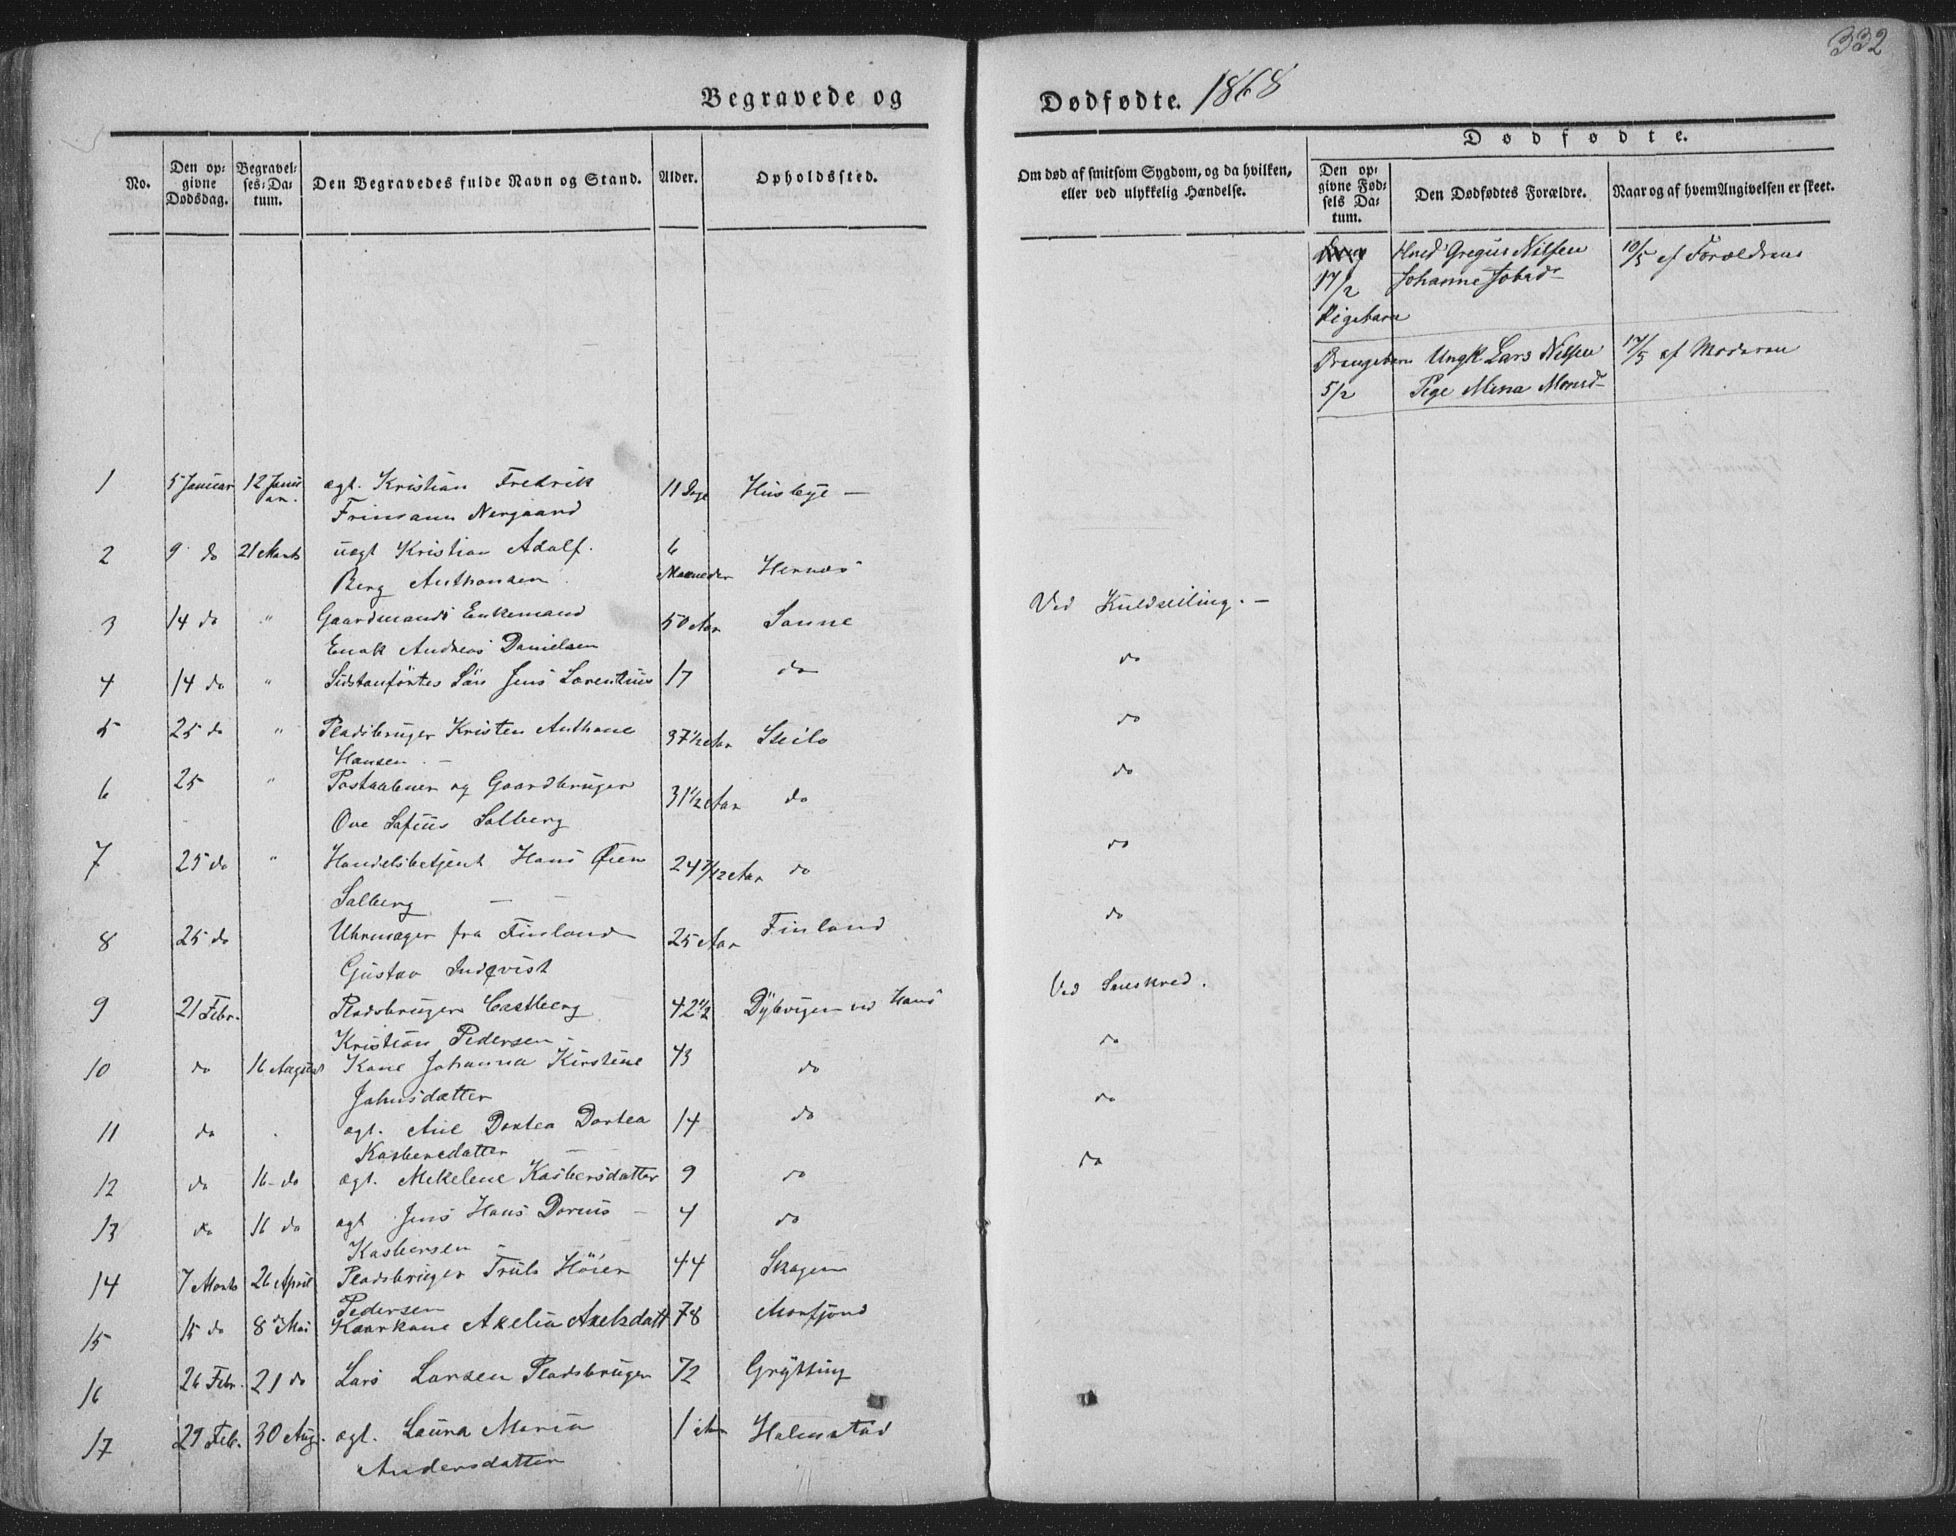 332
Begravede og Dødfødte. 1868
Dødfødte.
No.
Den opgivne Dødsdag.
Begravelses-Datum.
Den Begravedes fulde Navn og Stand.
Alder.
Opholdssted.
Om død af smitsom Sygdom, og da hvilken, eller ved ulykkelig Hændelse.
Den opgivne Fødsels Datum.
Den Dødfødtes Forældre.
Naar og af hvem Angivelsen er skeet.
17/2 Johanne Jobsd-
Gregus Nilsen 10/5 af Forældrene
Pigebarn
Drengebarn Ungk Lars Nilsen 17/5 af Moderen
5/2 Pige Mina Monsd-
1 5 Januar 12 Januar. ægt. Kristian Fredrik 11 Dage Husbye -
Frimann Nergaard
2 9 do 21 Marts uægt Kristian Adolf. 6 Maaneder Hernæs
Berg Anthonsen
3 14 do " Gaardmands Enkemand 50 Aar Sanne Ved Kuldseiling. -
Enok Andreas Danielsen
4 14 do " Sidstanførtes Søn Jens Lorentius 17 do do
5 25 do " Pladsbruger Kristen Anthone 37 1/2 Aar Skilo do
Hansen. -
6 25 " Postaabner og Gaardbruger 31 1/2 Aar do do
Ove Sofius Solberg
7 25 do " Handelsbetjent Hans Øien 24 7/12 Aar do do
Solberg -
8 25 do Uhrmager fra Finland 25 Aar Finland do
Gustav Indqvist
9 21 Febr. Pladsbruger Castberg 42 1/2 Dybvigen ved Hans Ved Sneskred.
Kristian Pedersen -
10 do 16 August Kone Johanna Kirstine 43 do do
Johnsdatter
11 do . ægt. Ane Dortea Dortea 14 do do
Kasbersdatter -
12 do 16 do ægt. Mekelene Kasbersdatter 9 do do
13 do 16 do ægt Jens Hans Dorius - 4 do
Kasbersen -
14 7 Marts 26 April Pladsbruger Truls Høier 44 Skagen
Pedersen
15 15 do 8 Mai Kaarkone Axelia Axelsdatt 78 Morfjord
16 26 Febr. 21 do Lars Larsen Pladsbruger 72 Grytting
17 29 Feb. 30 Aug. ægt. Laura Maria 1 Aar Halmstad
Andersdatter